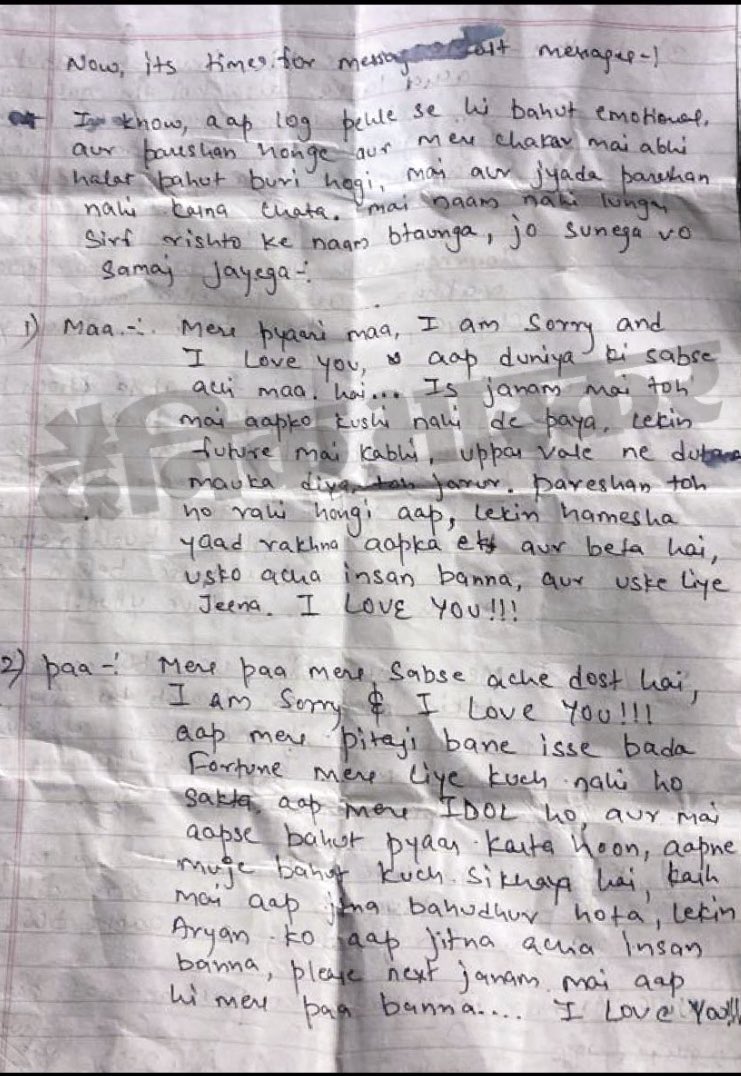 Now, its times for messag last messages-!
I know, aap log pehle se hi bahut emotional,
aur pareshan honge aur mere chakar mai abhi
halat bahut buri hogi, mai aur jyada pareshan
nahi karna chata. mai naam nahi lunga,
Sirf rishto ke naam btaunga, jo sunega vo
samaj jayega-:
1) Maa.-:. Mere pyaari maa, I am Sorry and
I Love you, aap duniya ki sabse
achi maa. hai... Is janam mai toh
mai aapko kushi nahi de paya, lekin
future mai kabhi, uppar vale ne
mauka diya, toh jarur. pareshan toh
ho rahi hongi aap, lekin hamesha
yaad rakhna aapka ek aur beta hai,
usko acha insan banna, aur uske liye
Jeena. I LOVE YOU!!!
2) paa-: Mere paa mere sabse ache dost hai,
I am Sorry & I Love YOU!!!
aap mere pitaji bane isse bada
Fortune mere liye kuch nahi ho
sakta. aap mere IDOL ho, aur mai
aapse bahut pyaar karta hoon, aapne
muje bahut kuch sikhaya hai, kash
mai aap jitna bahudhur hota, lekin
Aryan ko aap jitna acha insan
banna, please next janam mai aap
hi mere paa banna.... I Love You!!!
दैनिक भास्कर